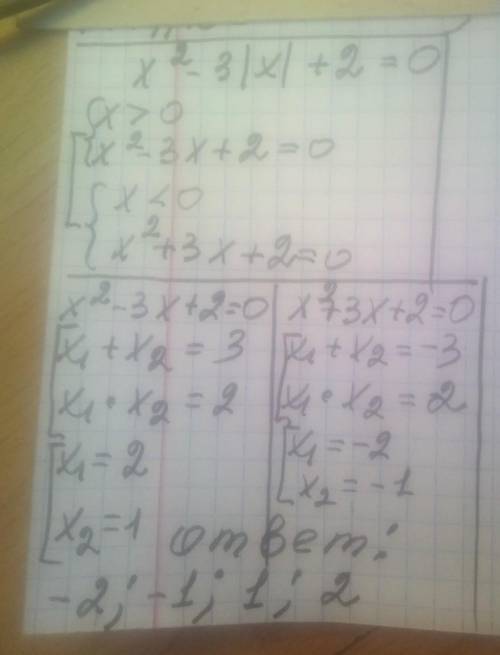 x² - 3|x| + 2 = 0
x > 0
x² - 3x + 2 = 0
x < 0
x² + 3x + 2 = 0
x² - 3x + 2 = 0
x₁ + x₂ = 3
x₁ • x₂ = 2
x₁ = 2
x₂ = 1
x² + 3x + 2 = 0
x₁ + x₂ = -3
x₁ • x₂ = 2
x₁ = -2
x₂ = -1
ответ:
-2; -1; 1; 2